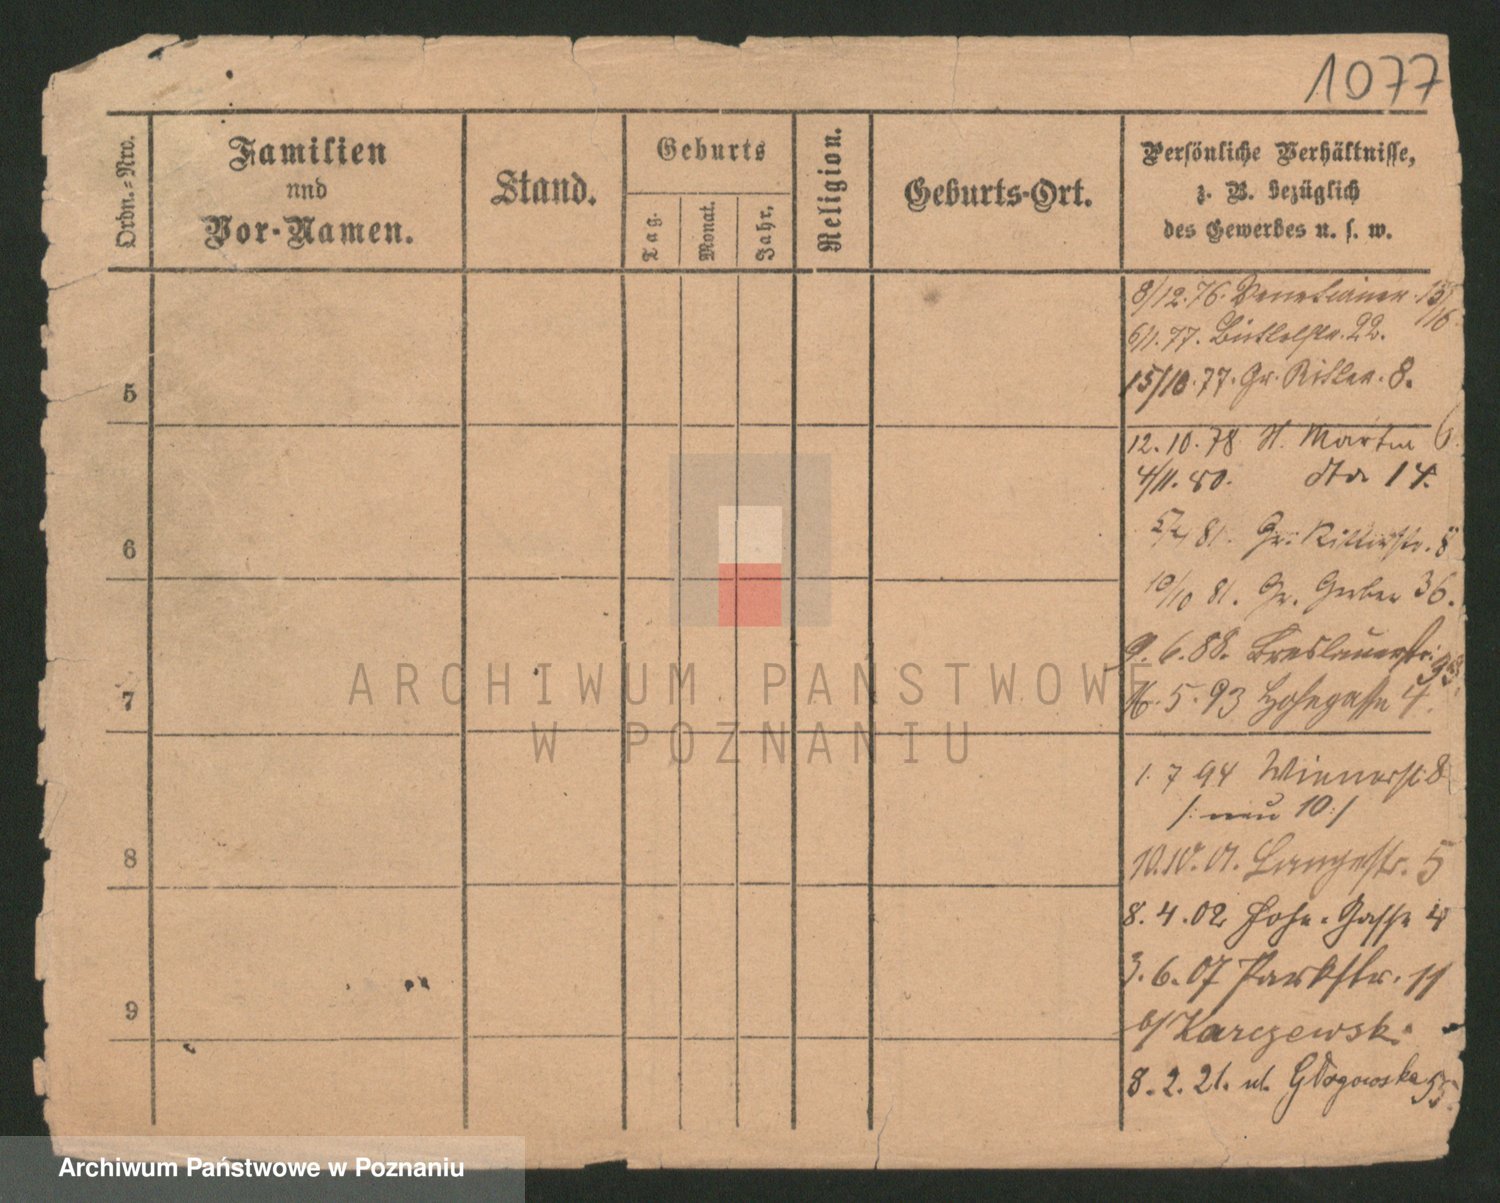 1077
Ordn.=Nro.
Familien
und
Vor-Namen.
Stand.
Geburts
Tag.
Monat.
Jahr.
Religion.
Geburts-Ort.
Persönliche Verhältnisse,
z. B. bezüglich
des Gewerbes u. s. w.
8/12.76. Venetianer. 15/16
6/1.77. Büttelstr. 22.
15/10.77. Gr. Ritter. 8.
5
12.10.78 St. Martin 6.
4/11.80. dto 14.
81. Gr. Ritterstr. 8
6
10/10 81. Gr. Gerber 36.
9.6.88. Breslauerstr.
16.5.93 Hohegasse 4.
7
1. 7 94 Wienerstr 8
/: neu 10 :/
10.10.01. Langestr. 5
8
8.4.02 Hohe-Gasse 4
3.6.07 Parkstr. 11
9
b/ Karczewski
8.2.21. ul. Głogowska 55.
ARCHIWUM PAŃSTWOWE
W POZNANIU
Archiwum Państwowe w Poznaniu